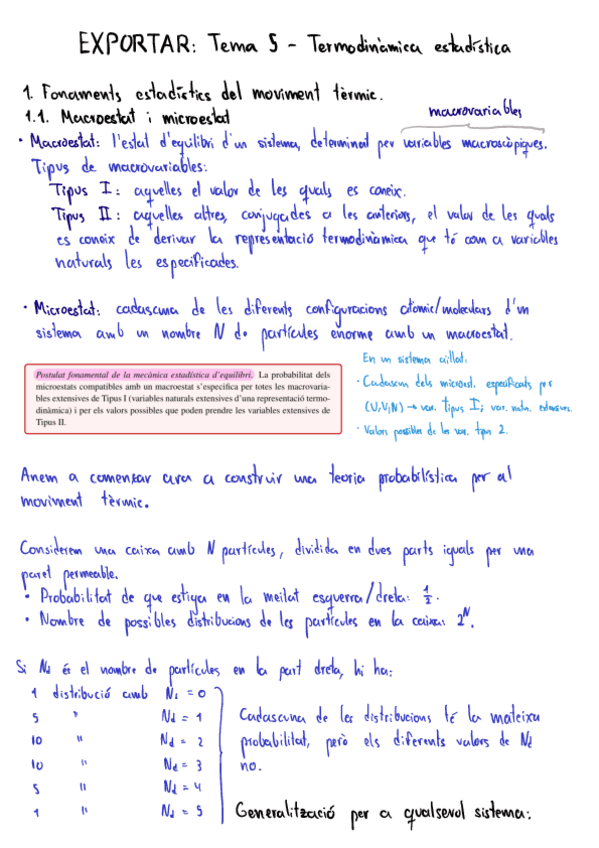 EXPORTAR: Tema 5 - Termodinàmica estadística
1. Fonaments estadístics del moviment tèrmic.
1.1. Macroestat i microestat
macrovariables
· Macroestat: l'estat d'equilibri d'un sistema, determinat per variables macroscòpiques.
Tipus de macrovariables:
Tipus I: aquelles el valor de les quals es coneix.
Tipus II: aquelles altres, conjugades a les anteriors, el valor de les quals
es coneix de derivar la representació termodinàmica que té com a variables
naturals les especificades.
· Microestat: cadascuna de les diferents configuracions atòmic/moleculars d'un
sistema amb un nombre N de partícules enorme amb un macroestat.
Postulat fonamental de la mecànica estadística d'equilibri. La probabilitat dels
microestats compatibles amb un macroestat s'especifica per totes les macrovaria-
bles extensives de Tipus I (variables naturals extensives d'una representació termo-
dinàmica) i per els valors possibles que poden prendre les variables extensives de
Tipus II.
En un sistema aïllat:
· Cadascun dels microest. especificats per
(U,V,N) → var. tipus I; var. natu. extensives.
· Valors possibles de les var. tipus 2.
Anem a comensar ara a construir una teoria probabilística per al
moviment tèrmic.
Considerem una caixa amb N partícules, dividida en dues parts iguals per una
paret permeable.
• Probabilitat de que estiga en la meitat esquerra/dreta: 1/2.
• Nombre de possibles distribucions de les partícules en la caixa: 2^N.
Si Nd és el nombre de partícules en la part dreta, hi ha:
1 distribució amb Nd = 0
5 " Nd = 1
10 " Nd = 2
10 " Nd = 3
5 " Nd = 4
1 " Nd = 5
Cadascuna de les distribucions té la mateixa
probabilitat, però els diferents valors de Nd
no.
Generalització per a qualsevol sistema: